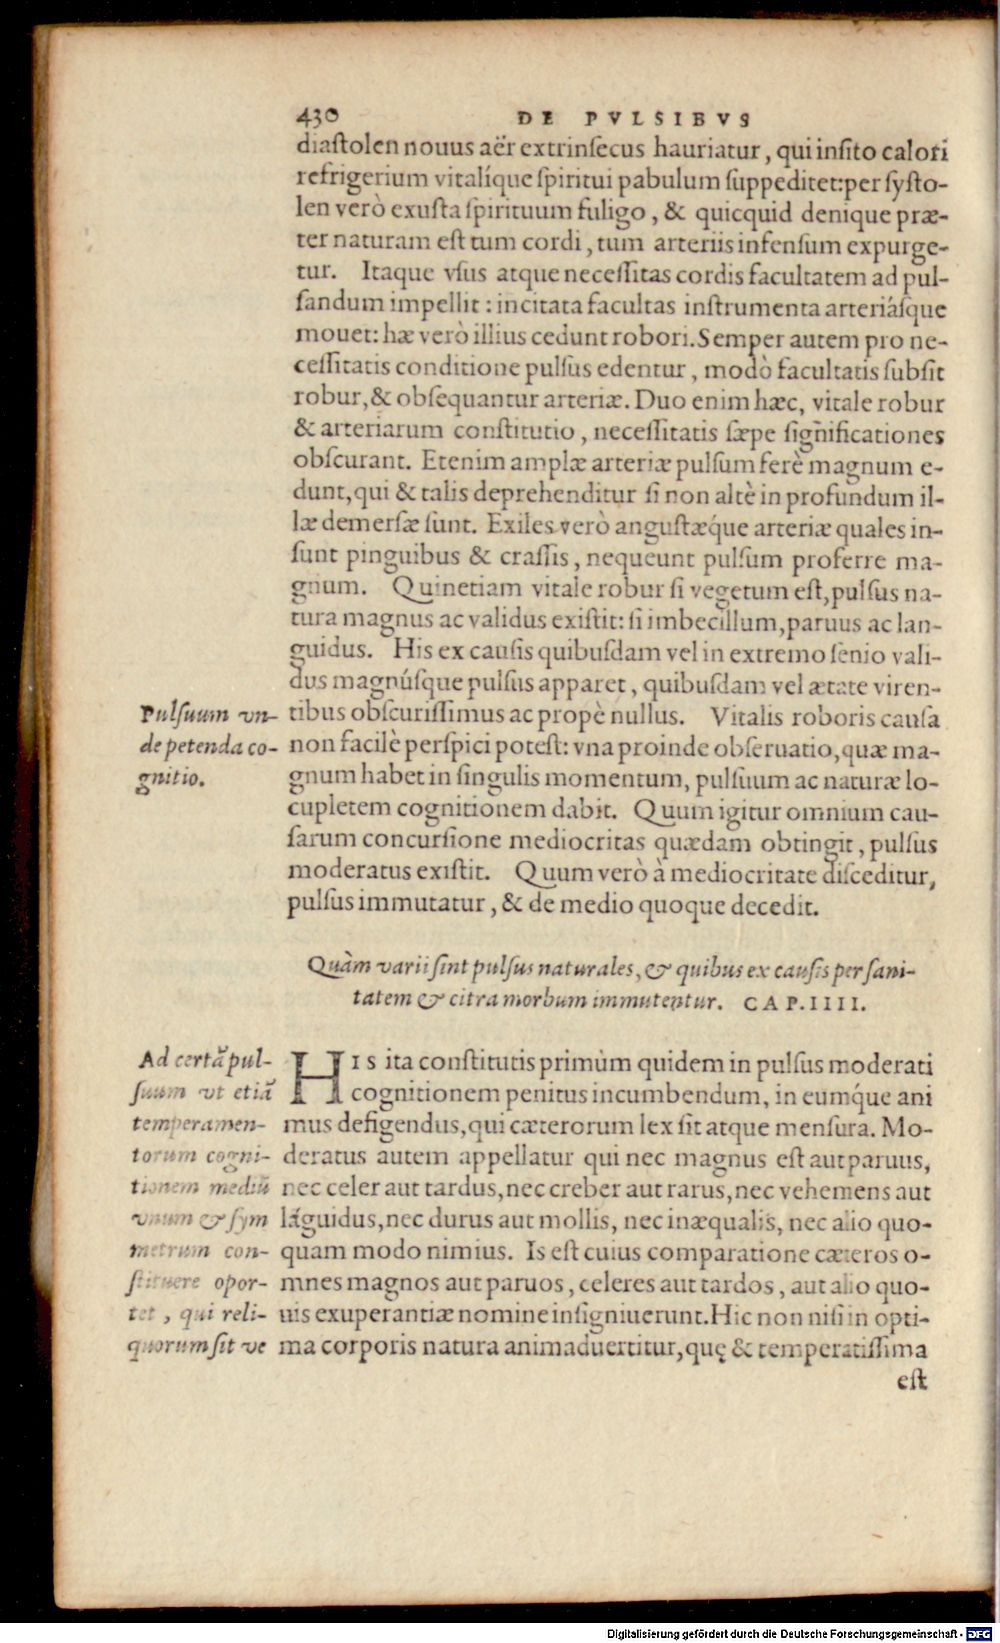 430 DE PVLSIBVS
diaſtolen nouus aër extrinſecus hauriatur, qui inſito calori
refrigerium vitalíque ſpiritui pabulum ſuppeditet: per ſyſto-
len verò exuſta ſpirituum fuligo, & quicquid denique præ-
ter naturam eſt tum cordi, tum arteriis infenſum expurge-
tur. Itaque vſus atque neceſſitas cordis facultatem ad pul-
ſandum impellit: incitata facultas inſtrumenta arteriáſque
mouet: hæ verò illius cedunt robori. Semper autem pro ne-
ceſſitatis conditione pulſus edentur, modò facultatis ſubſit
robur, & obſequantur arteriæ. Duo enim hæc, vitale robur
& arteriarum conſtitutio, neceſſitatis ſæpe ſignificationes
obſcurant. Etenim amplæ arteriæ pulſum ferè magnum e-
dunt, qui & talis deprehenditur ſi non altè in profundum il-
læ demerſæ ſunt. Exiles verò anguſtæque arteriæ quales in-
ſunt pinguibus & craſſis, nequeunt pulſum proferre ma-
gnum. Quinetiam vitale robur ſi vegetum eſt, pulſus na-
tura magnus ac validus exiſtit: ſi imbecillum, paruus ac lan-
guidus. His ex cauſis quibuſdam vel in extremo ſenio vali-
dus magnúſque pulſus apparet, quibuſdam vel ætate viren-
tibus obſcuriſſimus ac propè nullus. Vitalis roboris cauſa
non facilè perſpici poteſt: vna proinde obſeruatio, quæ ma-
gnum habet in ſingulis momentum, pulſuum ac naturæ lo-
cupletem cognitionem dabit. Quum igitur omnium cau-
ſarum concurſione mediocritas quædam obtingit, pulſus
moderatus exiſtit. Quum verò à mediocritate diſceditur,
pulſus immutatur, & de medio quoque decedit.
Pulſuum vn-
de petenda co-
gnitio.
Quàm varii ſint pulſus naturales, & quibus ex cauſis per ſani-
tatem & citra morbum immutentur. CAP. IIII.
HIS ita conſtitutis primùm quidem in pulſus moderati
cognitionem penitus incumbendum, in eumque ani
mus defigendus, qui cæterorum lex ſit atque menſura. Mo-
deratus autem appellatur qui nec magnus eſt aut paruus,
nec celer aut tardus, nec creber aut rarus, nec vehemens aut
lãguidus, nec durus aut mollis, nec inæqualis, nec alio quo-
quam modo nimius. Is eſt cuius comparatione cæteros o-
mnes magnos aut paruos, celeres aut tardos, aut alio quo-
uis exuperantiæ nomine inſigniuerunt. Hic non niſi in opti-
ma corporis natura animaduertitur, quę & temperatiſſima
eſt
Ad certã pul-
ſuum vt etiã
temperamen-
torum cogni-
tionem mediũ
vnum & ſym
metrum con-
ſtituere opor-
tet, qui reli-
quorum ſit ve
Digitalisierung gefördert durch die Deutsche Forschungsgemeinschaft - DFG